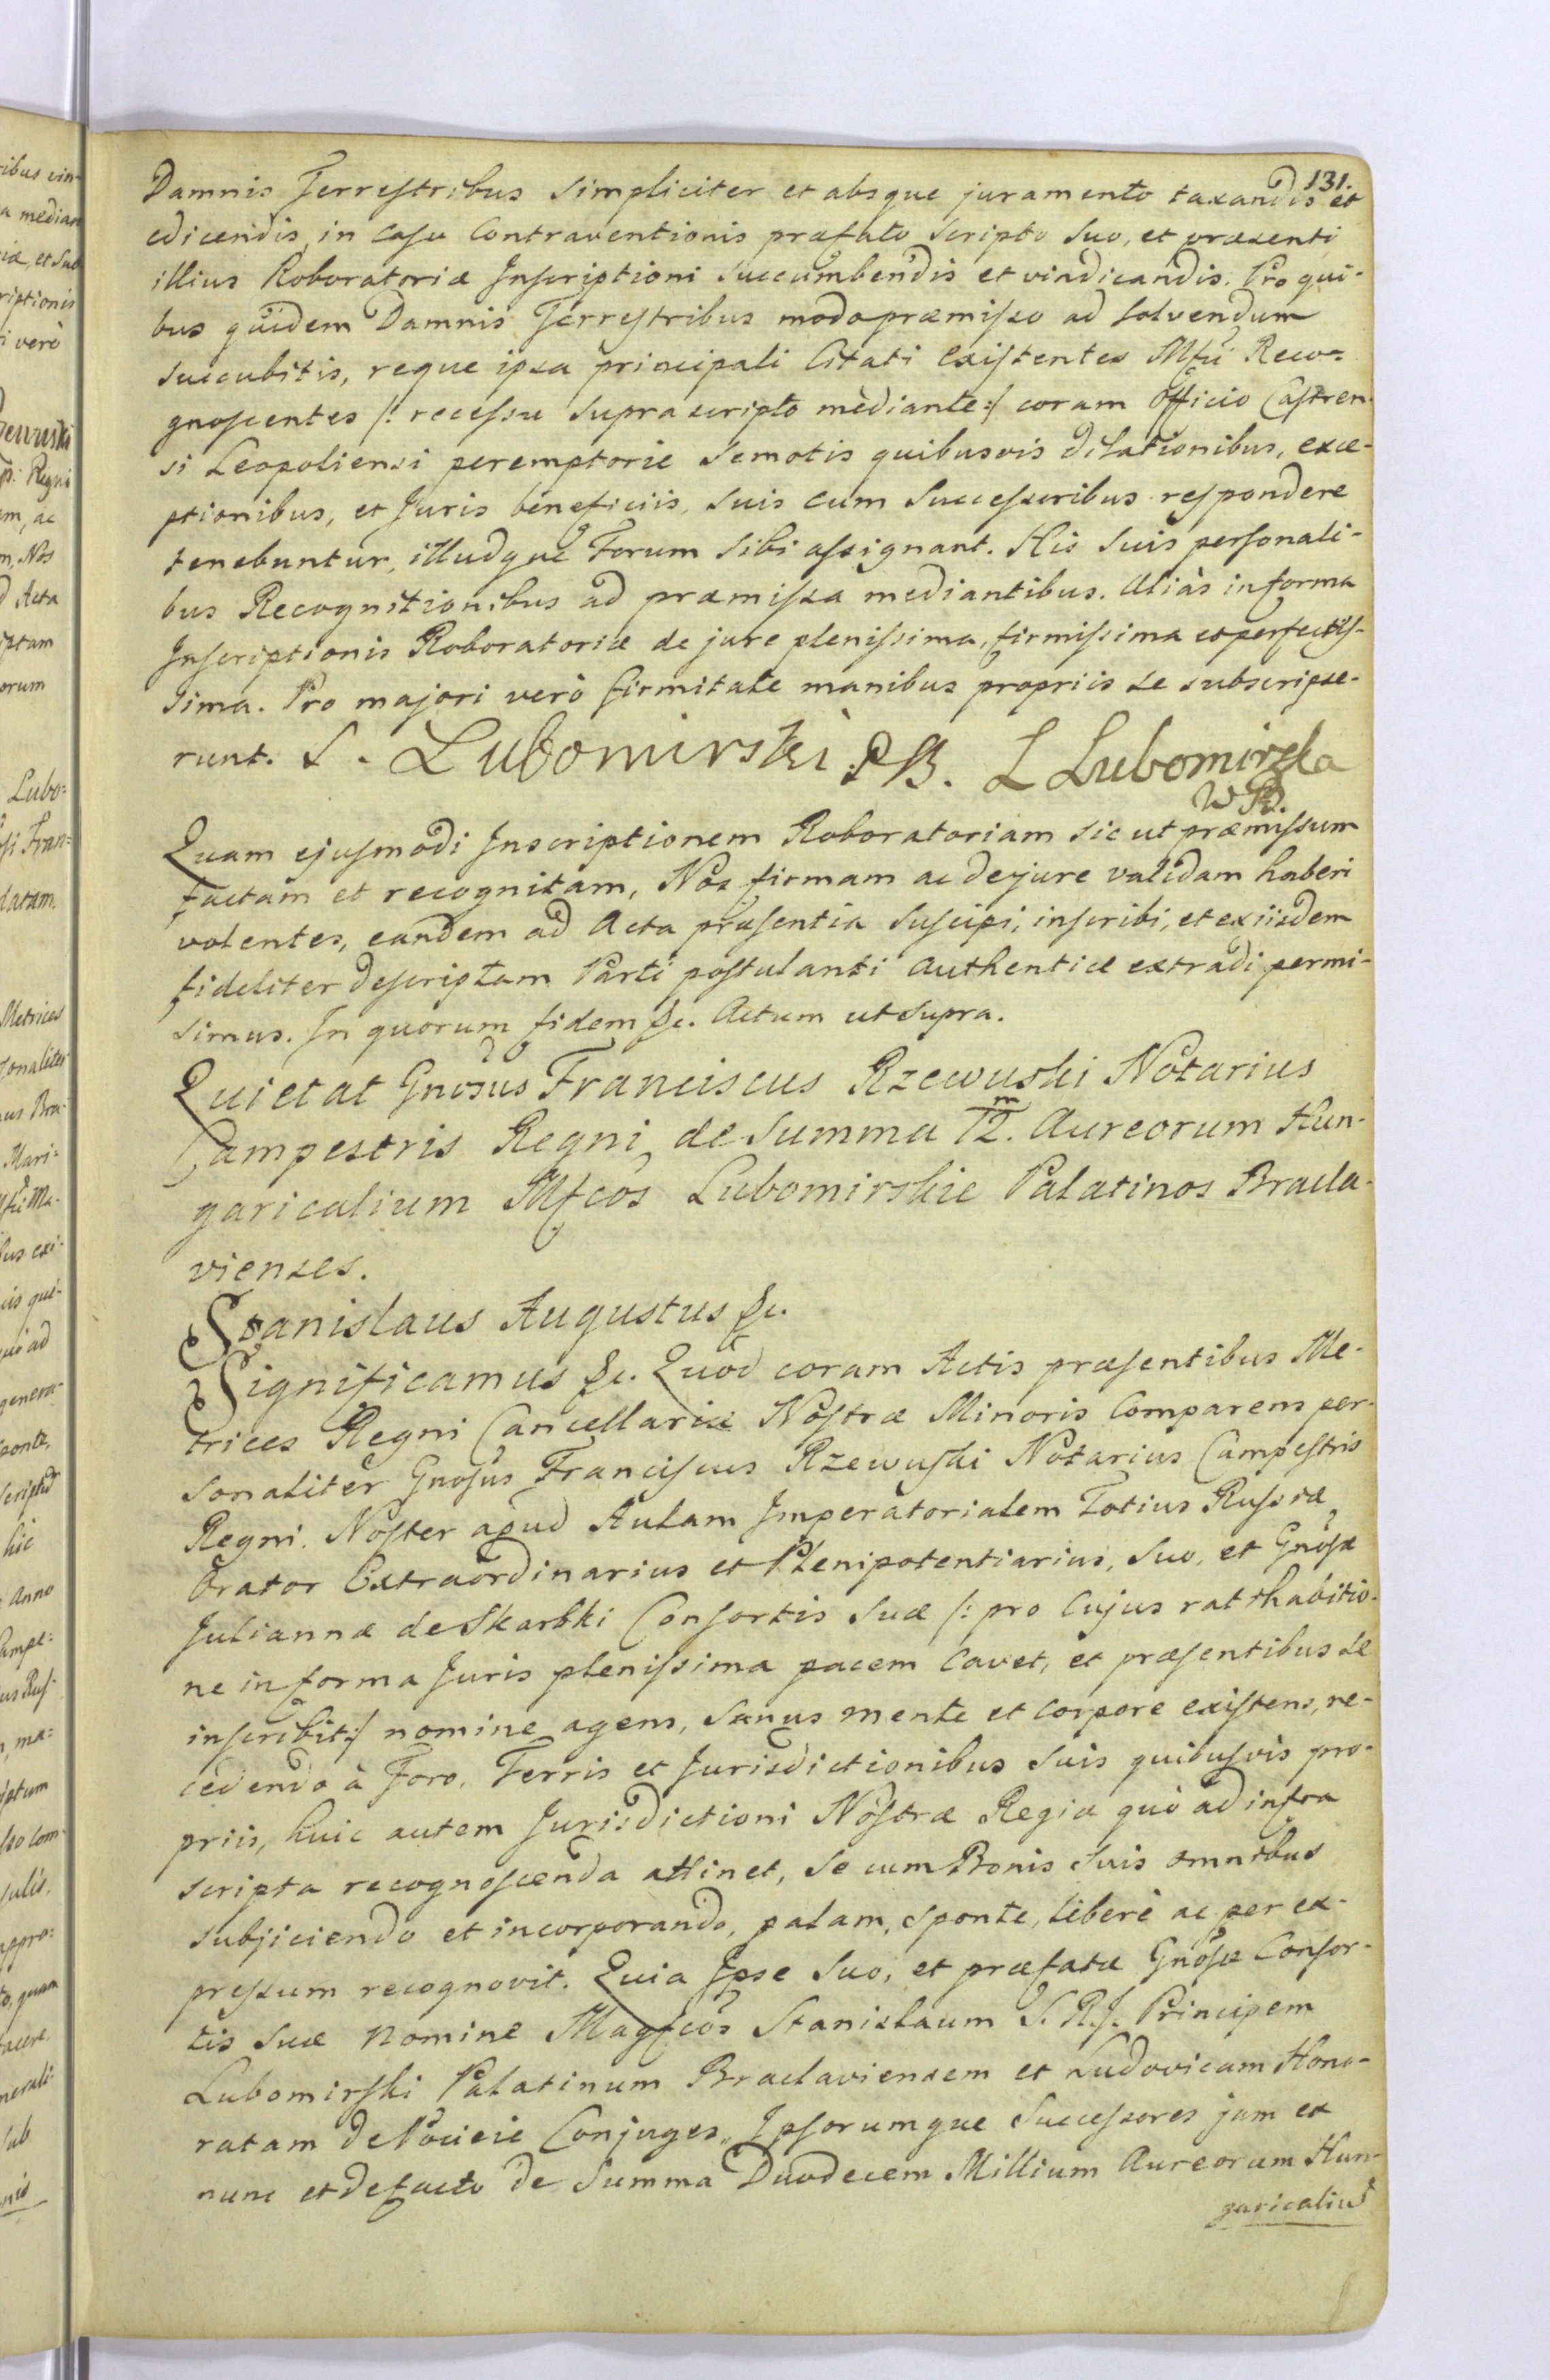 131.
Damnis Terrestribus simpliciter et absque juramento taxandis et
edicendis in casu Contraventionis præfato Scripto Suo, et præsenti
illius Roboratoriæ Inscriptioni succumbendis et vindicandis. Pro qui-
bus quidem Damnis Terrestribus modo præmisso ad solvendum
succubitis, reque ipsa principali Citati Existentes Mfci Reco-
gnoscentes /: recessu suprascripto mediante :/ coram Officio Castren-
si Leopoliensi peremptorie semotis quibusvis dilationibus, exce-
ptionibus, et Juris beneficiis, suis cum Successoribus respondere
tenebuntur, illudque Forum sibi assignant. His suis personali-
bus Recognitionibus ad præmissa mediantibus. Aliàs in forma
Inscriptionis Roboratoriæ de jure plenissima, firmissima et perfectis-
sima. Pro majori verò firmitate manibus propriis se subscripse-
runt. S. Lubomirski P B. L Lubomirska
W B.
Quam ejusmodi Inscriptionem Roboratoriam sic ut præmissum
factam et recognitam, Nos firmam ac de jure validam haberi
volentes, eandem ad Acta præsentia suscipi, inscribi, et ex iisdem
fideliter descriptam Parti postulanti authenticè extradi permi-
simus. In quorum fidem &c. Actum ut supra.
Quietat Gnosus Franciscus Rzewuski Notarius
Campestris Regni de Summa 12.m Aureorum Hun-
garicalium Mfcos Lubomirskie Palatinos Bracla-
vienses.
Stanislaus Augustus &c.
Significamus &c. Quod coram Actis præsentibus Me-
trices Regni Cancellariæ Nostræ Minoris Comparens per-
sonaliter Gnosus Franciscus Rzewuski Notarius Campestris
Regni, Noster apud Aulam Imperatorialem Totius Russiæ
Orator Extraordinarius et Plenipotentiarius, suo, et Gnosæ
Juliannæ de Skarbki Consortis suæ /: pro cujus rathabitio-
ne in forma Juris plenissima pacem cavet, et præsentibus se
inscribit :/ nomine agens, sanus mente et corpore existens, re-
cedendo à Foro, Terris et Jurisdictionibus suis quibusvis pro-
priis, huic autem Jurisdictioni Nostræ Regiæ quò ad infra
scripta recognoscenda attinet, se cum Bonis suis omnibus
subjiciendo et incorporando, palam, sponte, liberè ac per ex-
pressum recognovit. Quia Ipse suo, et præfatæ Gnosæ Consor-
tis suæ nomine Magfcos Stanislaum S. R. J. Principem
Lubomirski Palatinum Braclaviensem et Ludovicam Hono-
ratam de Pocieie Conjuges, Ipsorumque Successores jam ex
nunc et de facto de Summa Duodecem Millium Aureorum Hun-
garicalium